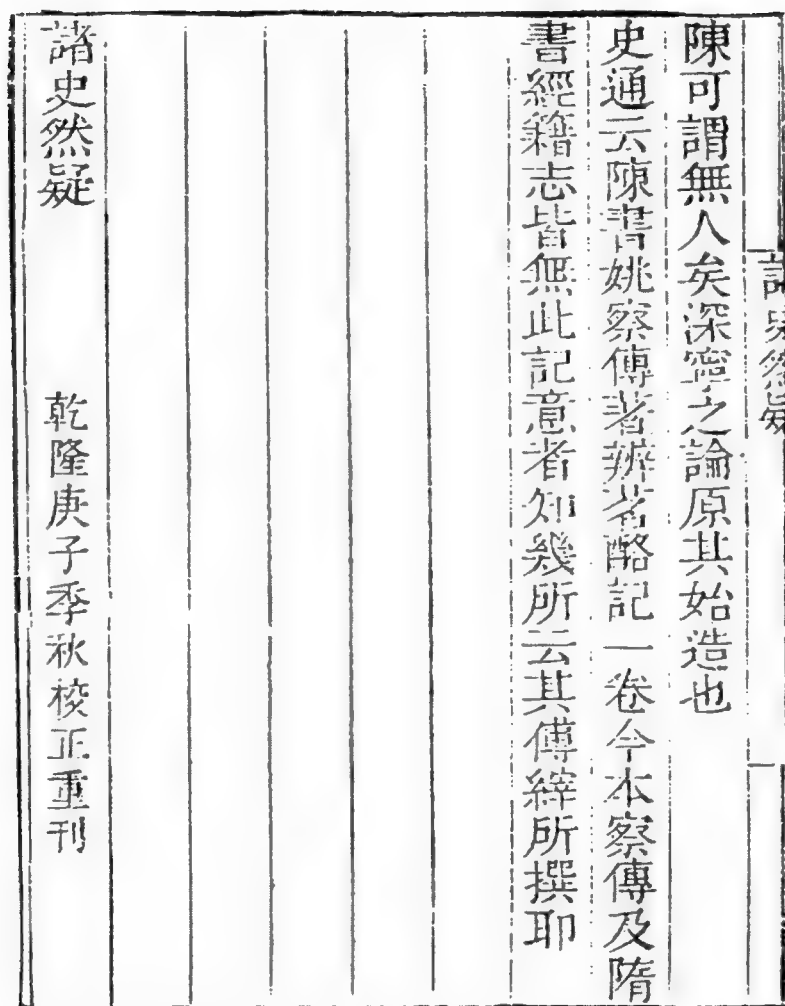 諸史然疑
陳可謂無人矣深寧之論原其始造也
史通云陳書姚察傳著辨茗酪記一卷今本察傳及隋
書經籍志皆無此記意者知幾所云其傅縡所撰耶
諸史然疑 乾隆庚子季秋校正重刊